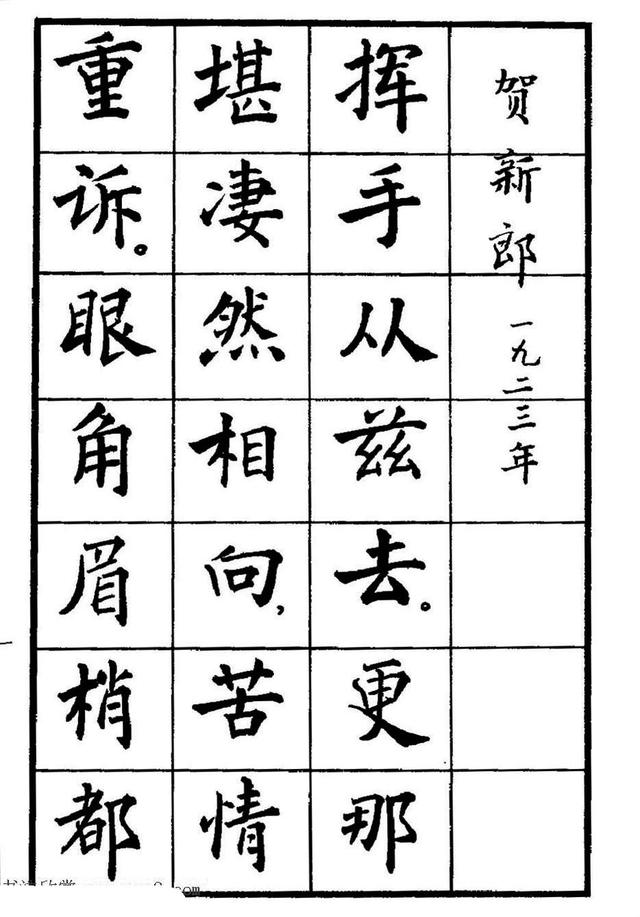 贺新郎 一九二三年
挥手从兹去。更那
堪凄然相向，苦情
重诉。眼角眉梢都